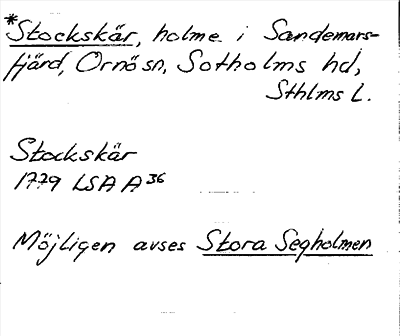 *Stockskär, holme i Sandemars-
fjärd, Ornö sn, Sotholms hd,
Sthlms L.
Stockskär
1779 LSA A 36
Möjligen avses Stora Segholmen